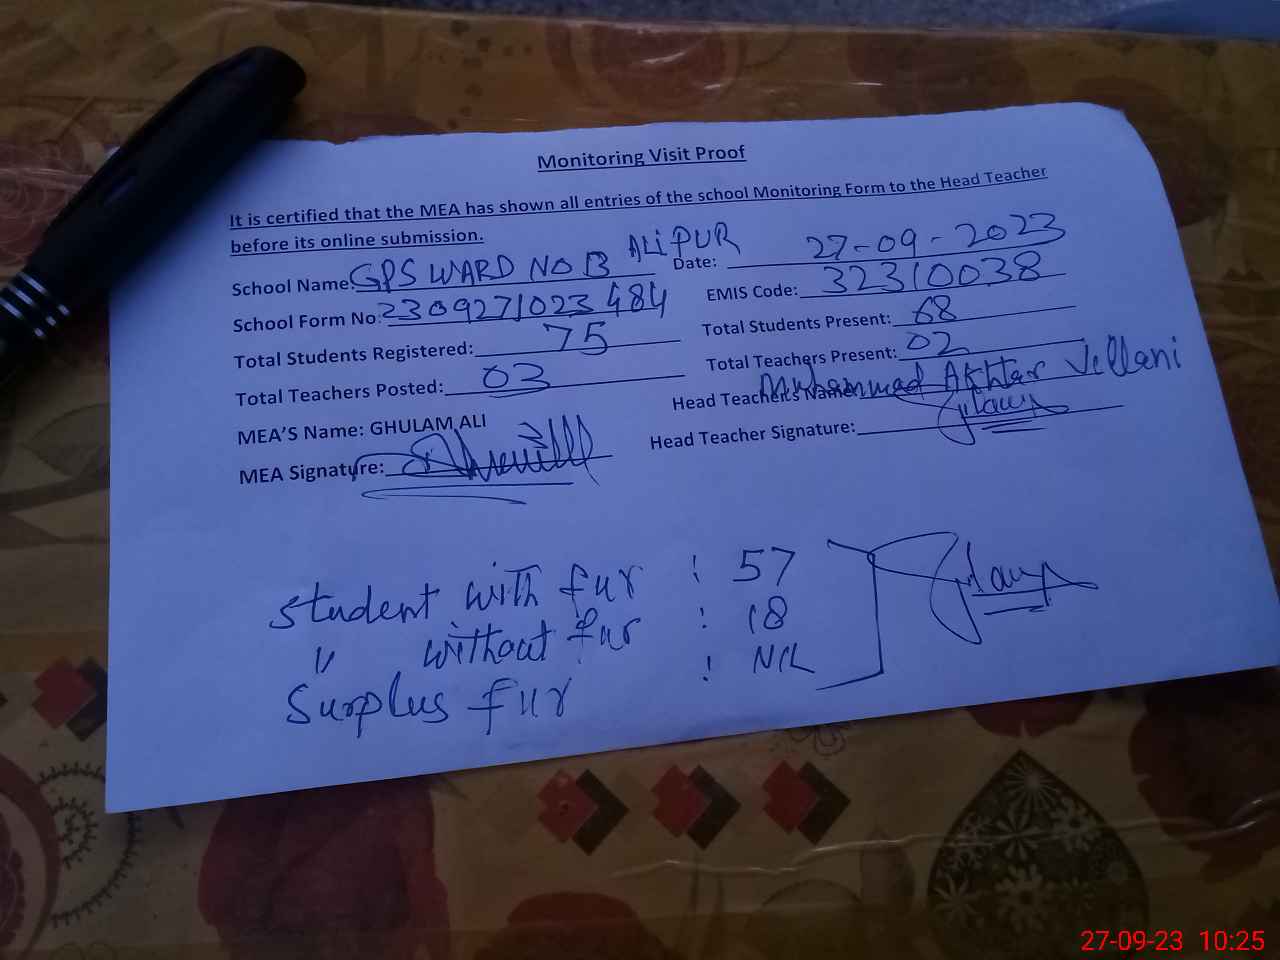 Monitoring Visit Proof
It is certified that the MEA has shown all entries of the school Monitoring Form to the Head Teacher
before its online submission.
School Name: GPS WARD NO 13 ALIPUR Date: 27-09-2023
School Form No: 2309271023484 EMIS Code: 32310038
Total Students Registered: 75 Total Students Present: 68
Total Teachers Posted: 03 Total Teachers Present: 02
MEA'S Name: GHULAM ALI Head Teacher's Name: Muhammad Akhtar Jellani
MEA Signature: Head Teacher Signature:
Student with fur : 57
" without fur : 18
Surplus fur : NIL
27-09-23 10:25